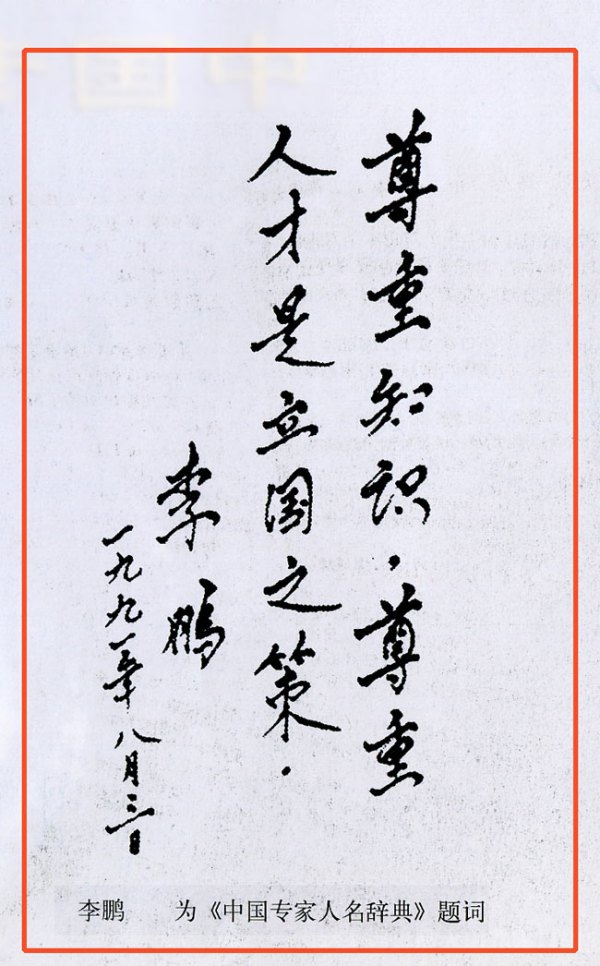 尊重知识，尊重
人才是立国之策．
李鹏
一九九一年八月三日
李鹏　　为《中国专家人名辞典》题词